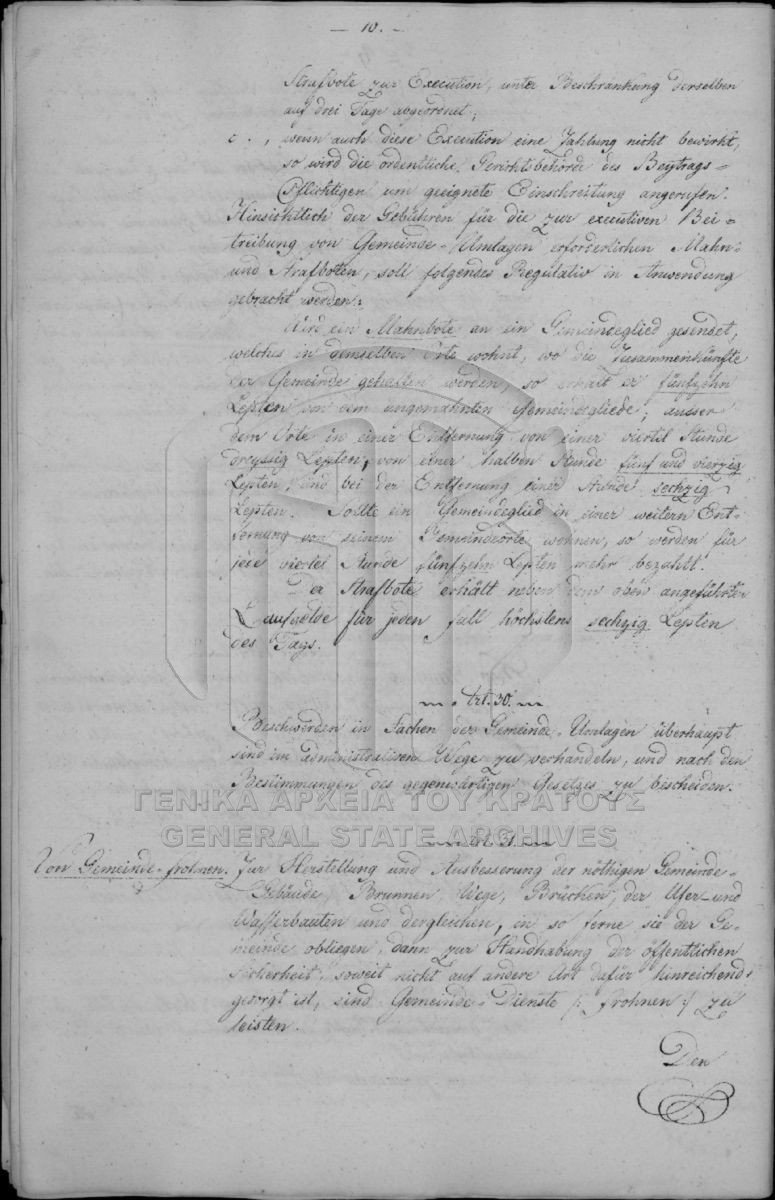 — 10. —
Strafbote zur Execution, unter Beschränkung derselben
auf drei Tage abgeordnet;
c., wenn auch diese Execution eine Zahlung nicht bewirkt,
so wird die ordentliche Gerichtsbehörde des Beytrags=
Pflichtigen um geeignete Einschreitung angerufen.
Hinsichtlich der Gebühren für die zur executiven Bei=
treibung von Gemeinde-Umlagen erforderlichen Mahn=
und Strafboten, soll folgendes Regulativ in Anwendung
gebracht werden:
Wird ein Mahnbote an ein Gemeindeglied gesendet,
welches in demselben Orte wohnt, wo die Zusammenkünfte
der Gemeinde gehalten werden, so erhält er fünfzehn
Lepten von dem angemahnten Gemeindegliede; ausser
dem Orte in einer Entfernung von einer viertel Stunde
dreyssig Lepten, von einer halben Stunde fünf und vierzig
Lepten, und bei der Entfernung einer Stunde sechzig
Lepten. Sollte ein Gemeindeglied in einer weitern Ent=
fernung von seinem Gemeindeorte wohnen, so werden für
jede viertel Stunde fünfzehn Lepten mehr bezahlt.
Der Strafbote erhält neben dem oben angeführten
Laufgelde für jeden fall höchstens sechzig Lepten
des Tags.
Art. 30.
Beschwerden in Sachen der Gemeinde-Umlagen überhaupt
sind im administrativen Wege zu verhandeln, und nach den
Bestimmungen des gegenwärtigen Gesetzes zu bescheiden.
ΓΕΝΙΚΑ ΑΡΧΕΙΑ ΤΟΥ ΚΡΑΤΟΥΣ
GENERAL STATE ARCHIVES
Art. 31.
Von Gemeinde-frohnen. Zur Herstellung und Ausbesserung der nöthigen Gemeinde=
Gebäude, Brunnen, Wege, Brücken, der Ufer- und
Wasserbauten und dergleichen, in so ferne sie der Ge=
meinde obliegen, dann zur Handhabung der öffentlichen
Sicherheit, soweit nicht auf andere Art dafür hinreichend
gesorgt ist, sind Gemeinde-Dienste /: frohnen :/ zu
leisten.
Den